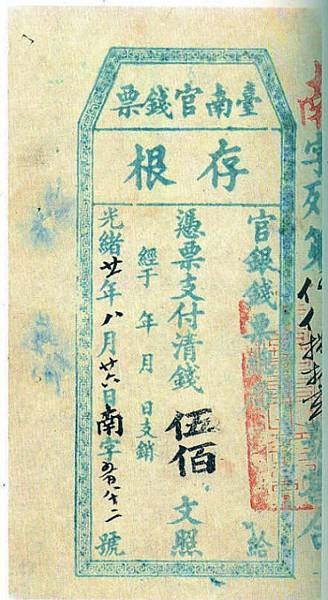 臺南官錢票
存根
南字列第
官銀錢票總 給
憑票支付清錢伍佰文照
經于 年 月 日支銷
光緒廿年八月廿六日南字 號